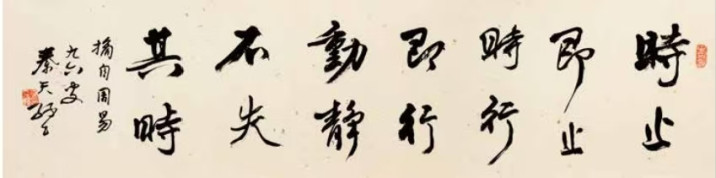 時止
即止
時行
即行
動静
不失
其時
摘自周易
九六叟
秦天